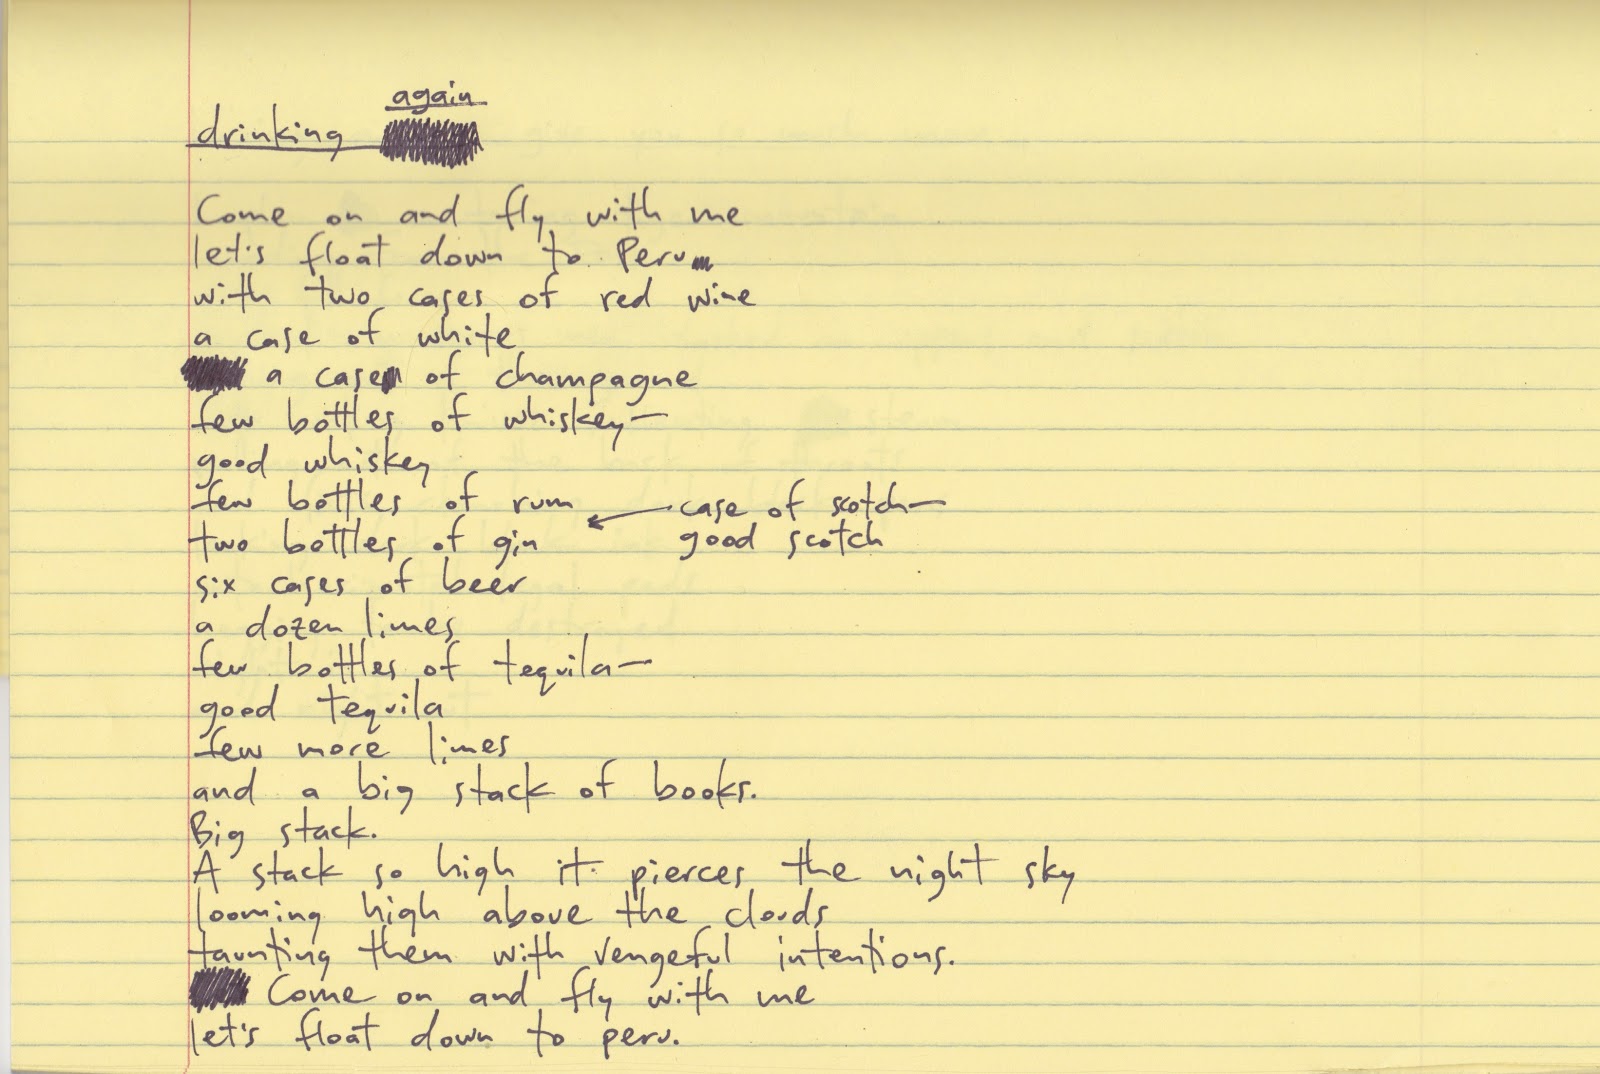 again
drinking
Come on and fly with me
let's float down to Peru
with two cases of red wine
a case of white
a case of champagne
few bottles of whiskey—
good whiskey
few bottles of rum
case of scotch—
good scotch
two bottles of gin
six cases of beer
a dozen limes
few bottles of tequila—
good tequila
few more limes
and a big stack of books.
Big stack.
A stack so high it pierces the night sky
looming high above the clouds
taunting them with vengeful intentions.
Come on and fly with me
let's float down to peru.